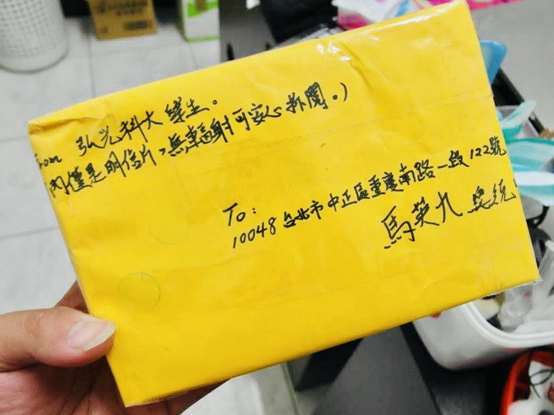 From 弘光科大學生。
內僅是明信片，無輻射可安心拆閱。)
To:
10048 台北市中正區重慶南路一段122號
馬英九 總統